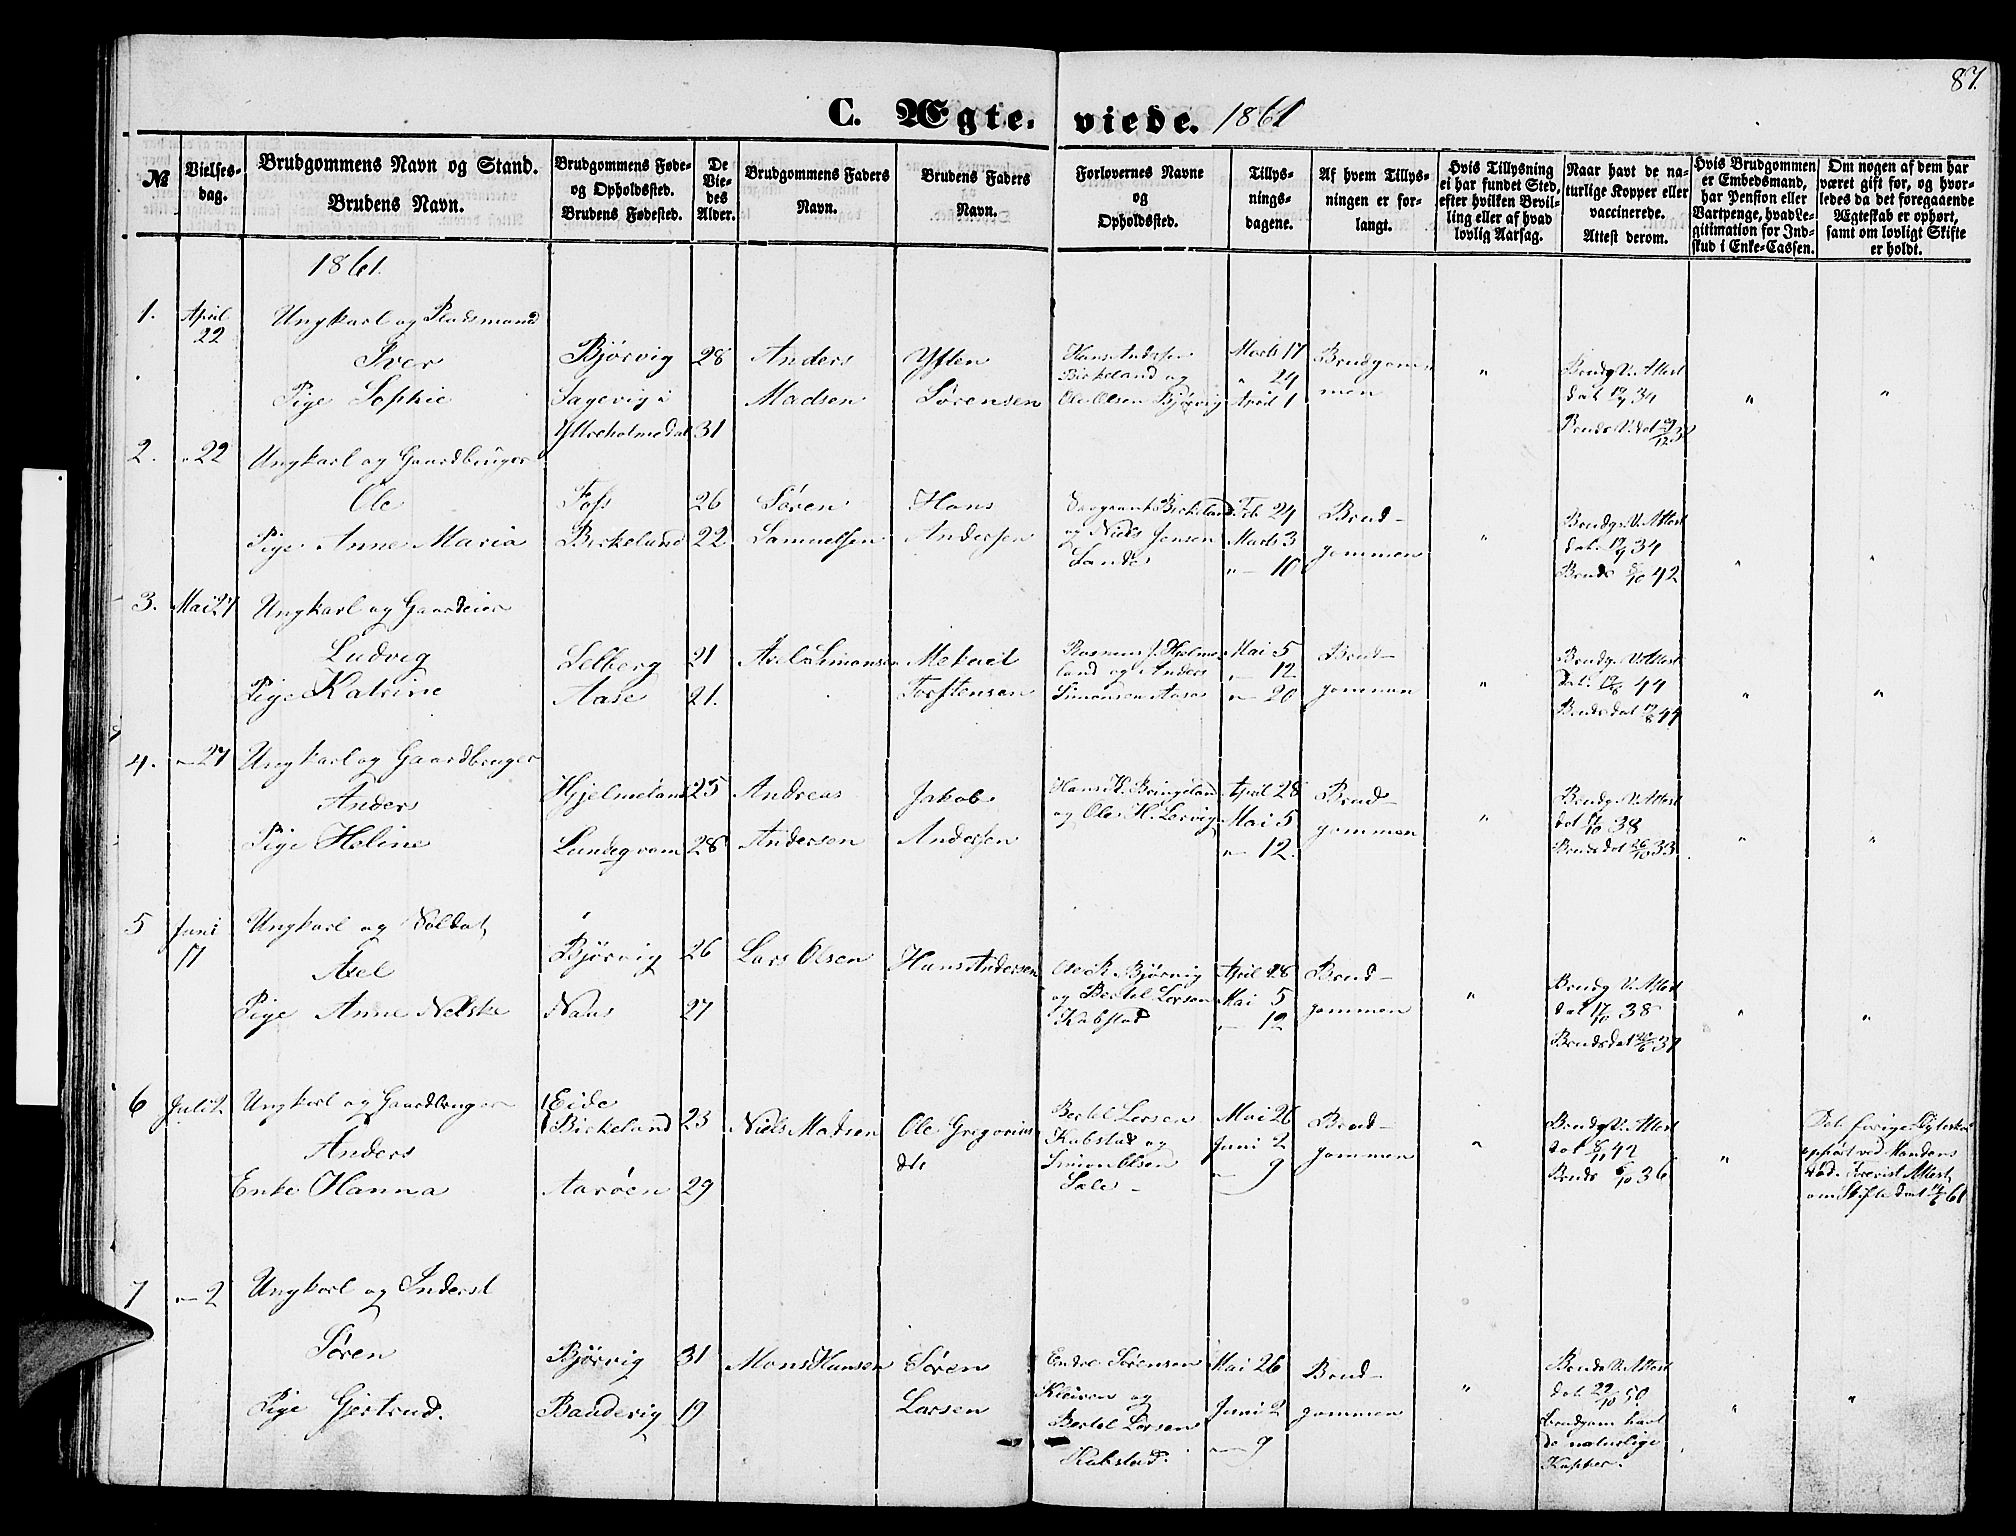 87.
C. Ægte- viede. 1861
№
Vielses-
dag.
Brudgommens Navn og Stand.
Brudens Navn.
Brudgommens Føde-
og Opholdssted.
Brudens Fødested.
De
Vie-
des
Alder.
Brudgommens Faders
Navn.
Brudens Faders
Navn.
Forlovernes Navne
og
Opholdssted.
Tillys-
nings-
dagene.
Af hvem Tillys-
ningen er for-
langt.
Hvis Tillysning
ei har fundet Sted,
efter hvilken Bevil-
ling eller af hvad
lovlig Aarsag.
Naar havt de na-
turlige Kopper eller
vaccinerede.
Attest derom.
Hvis Brudgommen
er Embedsmand,
har Pension eller
Vartpenge, hvad Le-
gitimation for Ind-
skud i Enke-Cassen.
Om nogen af dem har
været gift før, og hvor-
ledes da det foregaaende
Ægteskab er ophørt,
samt om lovligt Skifte
er holdt.
1861.
1. April 22 Ungkarl og Pladsmand
Iver Bjørvig 28 Anders Madsen
Pige Sophie Sagevig i Ytreholmedal 31 Sørensen
Hans Andersen
Birkeland og
Ole Olsen Bjørvig
Marts 17
" 24
April 1
Brudgommen
"
Brudg. V. Attest
dat. 34
"
"
2. " 22 Ungkarl og Gaardbruger
Ole Foss 26 Søren Samuelsen
Pige Anne Maria Birkeland 22 Hans Andersen
Birkeland
og Niels Jensen
Sande
Feb 24
Marts 3
" 10
Brud-
gommen
"
Brudg. V. Attest
dat. 34
Bruds 42
"
"
3. Mai 27 Ungkarl og Gaardeier
Ludvig Selberg 21 Axel Simonsen
Pige Katrine Aase 21. Torstensen
Rasmus J. Hielme-
land og Anders
Simonsen Aase
Mai 5
" 12
" 20
Brud-
gommen
"
Brudg. V. Attest
dat. 44
Bruds dat 44
"
"
4. " 27 Ungkarl og Gaardbruger
Anders Hjelmeland 25 Andreas Andersen
Pige Heline 28 Jakob Andersen
Hans H. Bringeland
og Ole H. Lervig
April 28
Mai 5
" 12.
Brud-
gommen
"
Brudg. V. Attest
dat 38
Bruds dat 33
"
"
5 Juni 17 Ungkarl og Soldat
Axel Bjørvig 26 Lars Olsen
Pige Anne Nelske 27 Hans Andersen
Ole R. Bjørvig
og Bertel Larsen
Kabstad
April 28
Mai 5
" 12
Brud-
gommen
"
Brudg V. Attest
dat 17/10 38
Bruds dat 37
"
"
6 Juli 2 Ungkarl og Gaardbruger
Anders Eide Birkeland 23 Niels Madsen
Enke Hanna Aarøen 29 Ole Gregorius
Bertel Larsen
Kabstad og
Simon Olsen
Sale
Mai 26
Juni 2
" 9
Brud-
gommen
"
Brudg V. Attest
dat 42
Bruds 36
"
Det forige Ægteskab
ophørt ved Mandens
Død. Forevist Attest
om Skifte dat 61
7 " 2 Ungkarl og Inderst
Søren Bjørvig 31 Mons Hansen
Pige Gjertrud. Bandevig 19 Søren Larsen
Endre Sørensen
Kleiven og
Bertel Larsen
Kabstad.
Mai 26
Juni 2
" 9
Brud-
gommen
"
Bruds V. Attest
dat 29/10 50.
Brudgom havt
de naturlige
Kopper.
"
"